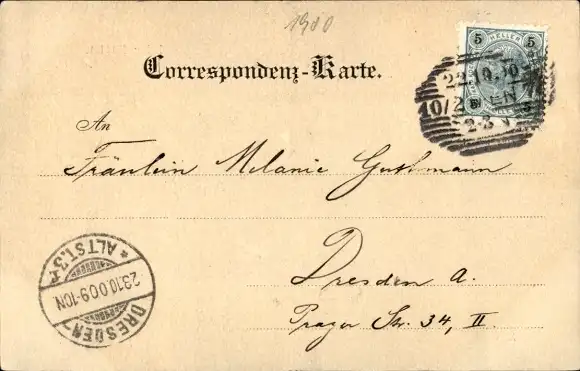 1900
Correspondenz-Karte.
5 HELLER 5
22.10.00
10/2 WIEN
2-3 N
An
Fräulein Melanie Guthmann
Dresden A.
Prager Str. 34, II.
* ALTST. 3 *
23.10.00.9-10N.
DRESDEN